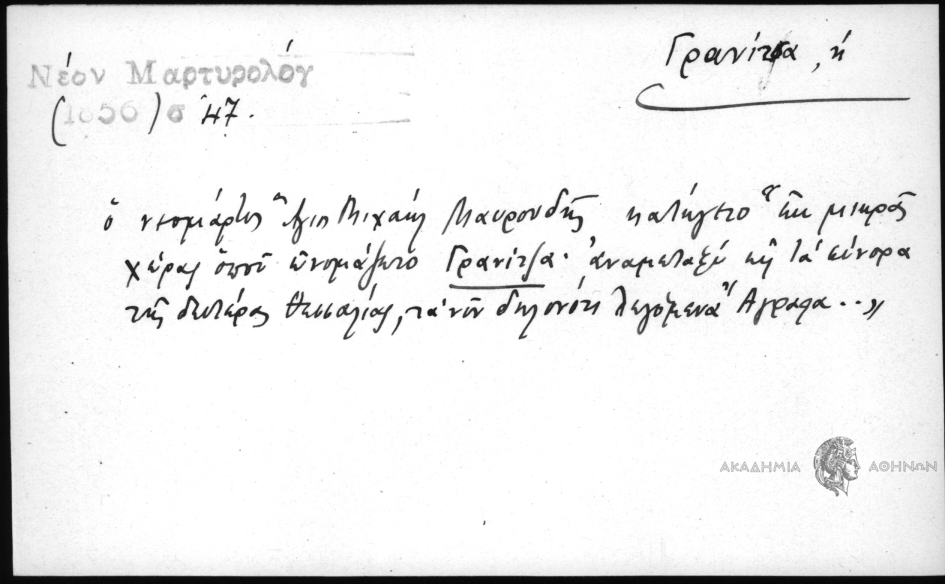 Γρανίτσα, ἡ
Νέον Μαρτυρολόγ
(1856) σ 47.
ὁ νεομάρτυς Ἅγιος Μιχαὴλ Μαυρουδῆς κατήγετο ἐκ μικρᾶς
χώρας ὁποῦ ὠνομάζετο Γρανίτζα· ἀναμεταξὺ εἰς τὰ σύνορα
τῆς δευτέρας Θεσσαλίας, τὰ νῦν δηλονότι λεγόμενα Ἄγραφα..»
ΑΚΑΔΗΜΙΑ ΑΘΗΝΩΝ